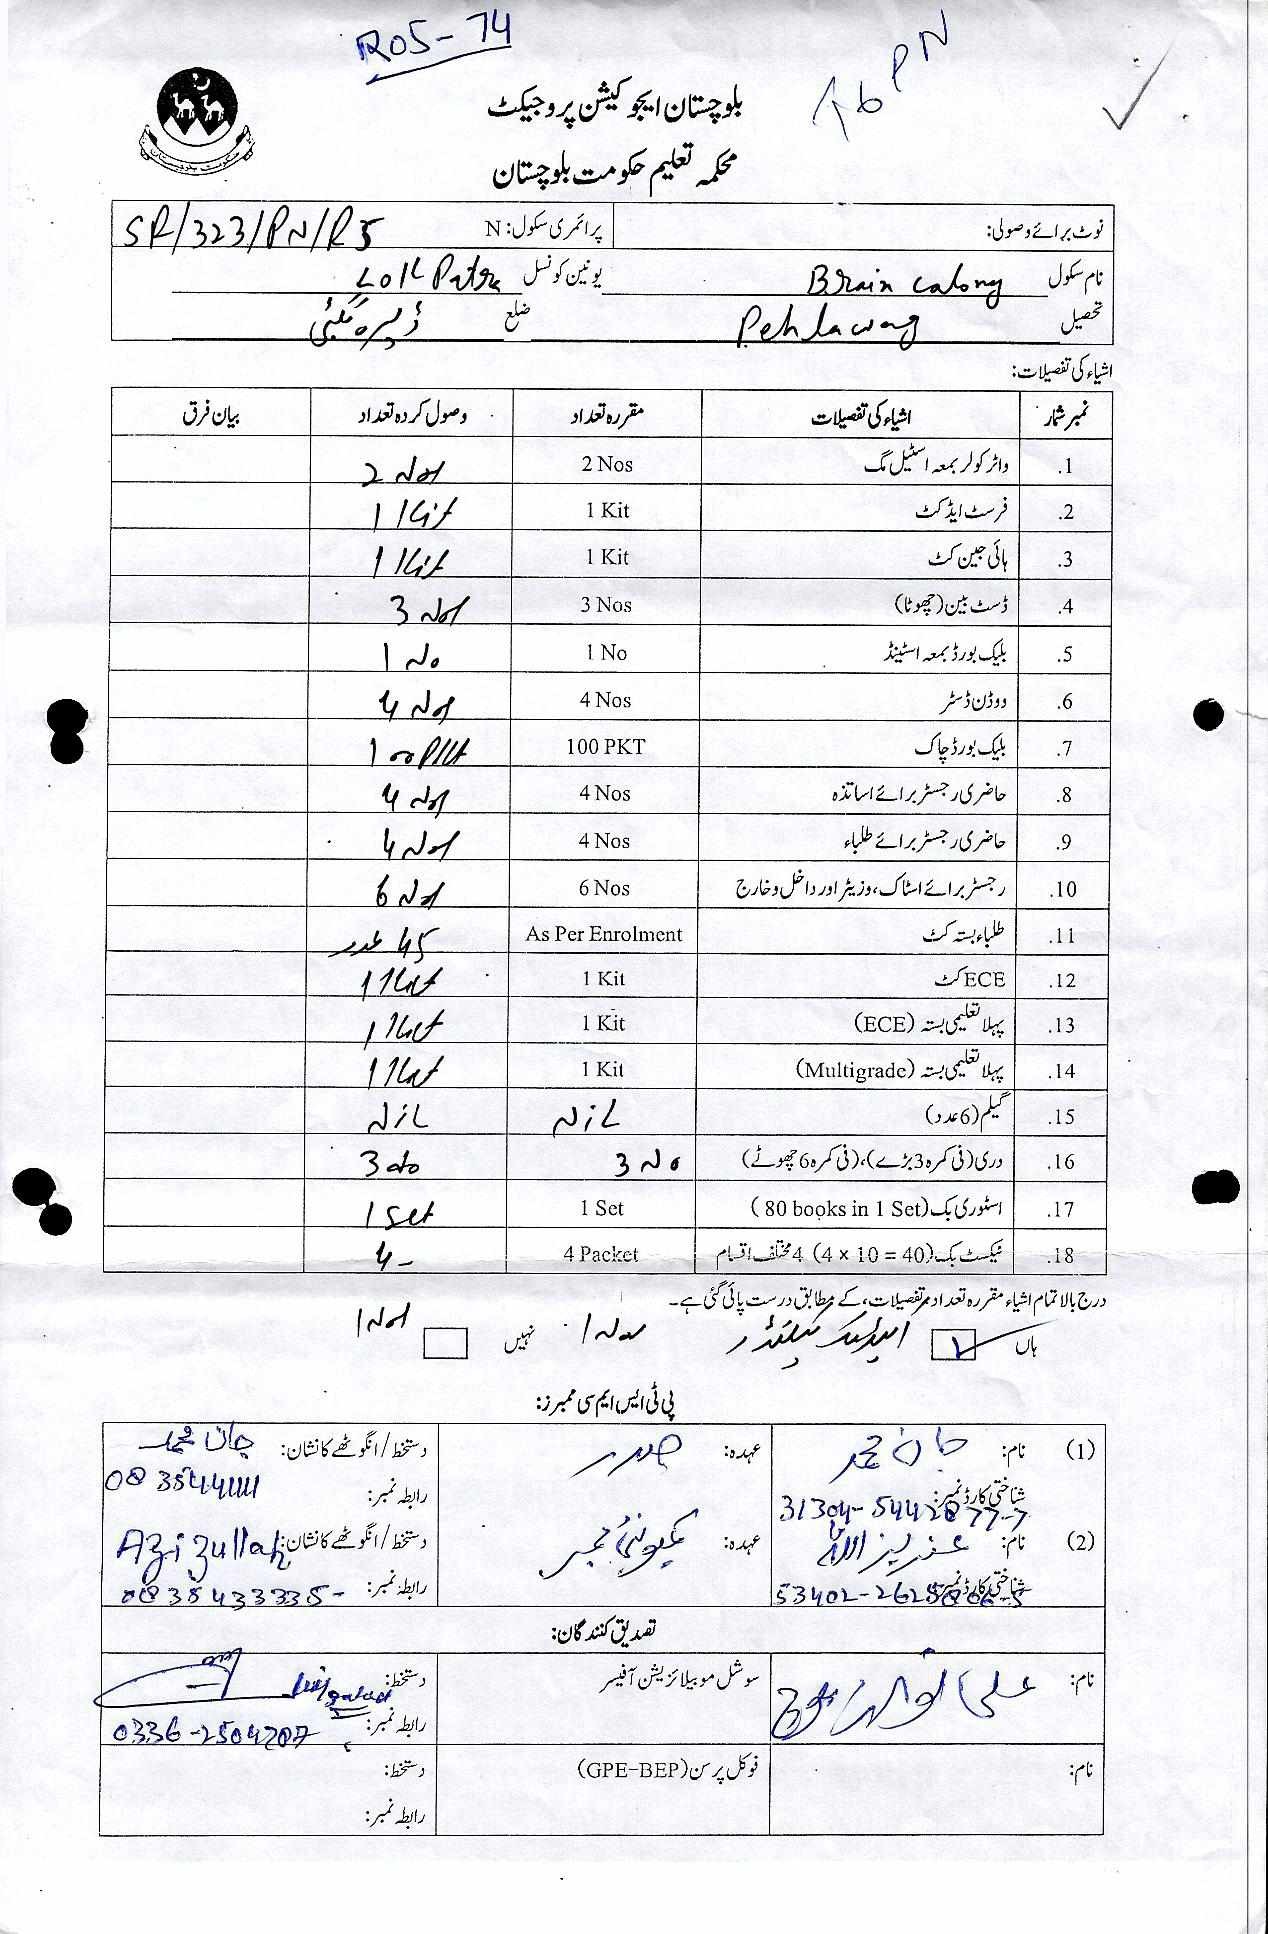 R05-74
PN
بلوچستان ایجوکیشن پروجیکٹ
محکمہ تعلیم حکومت بلوچستان
حکومت بلوچستان
نوٹ برائے وصولی: پرائمری سکول: N SR/323/PN/R5
نام سکول Brain calony یونین کونسل
تحصیل ضلع ڈیرہ بگٹی
اشیاء کی تفصیلات:
نمبر شمار اشیاء کی تفصیلات مقررہ تعداد وصول کردہ تعداد بیان فرق
1. واٹر کولر بمعہ اسٹیل مگ 2 Nos 2 Nos
2. فرسٹ ایڈ کٹ 1 Kit 1 Kit
3. ہائی جین کٹ 1 Kit 1 Kit
4. ڈسٹ بین (چھوٹا) 3 Nos 3 Nos
5. بلیک بورڈ بمعہ اسٹینڈ 1 No 1 No
6. ووڈن ڈسٹر 4 Nos 4 Nos
7. بلیک بورڈ چاک 100 PKT 100 PKt
8. حاضری رجسٹر برائے اساتذہ 4 Nos 4 Nos
9. حاضری رجسٹر برائے طلباء 4 Nos 4 Nos
10. رجسٹر برائے اسٹاک، وزیٹر اور داخل و خارج 6 Nos 6 Nos
11. طلباء بستہ کٹ As Per Enrolment 45 عدد
12. ECE کٹ 1 Kit 1 Kit
13. پہلا تعلیمی بستہ (ECE) 1 Kit 1 Kit
14. پہلا تعلیمی بستہ (Multigrade) 1 Kit 1 Kit
15. گیلم (6 عدد) NIL NIL
16. دری (فی کمرہ 3 بڑے)، (فی کمرہ 6 چھوٹے) 3 No 3 do
17. اسٹوری بک (80 books in 1 Set) 1 Set 1 Set
18. ٹیکسٹ بک (4 × 10 = 40) 4 مختلف اقسام 4 Packet 4 -
درج بالا تمام اشیاء مقررہ تعداد و تفصیلات، کے مطابق درست پائی گئی ہے۔
ہاں 1 Nos نہیں 1 Nos
پی ٹی ایس ایم سی ممبرز:
(1) نام: جان محمد عہدہ: صدر دستخط/انگوٹھے کا نشان: جان محمد
شناختی کارڈ نمبر: رابطہ نمبر:
(2) نام: عزیز اللہ عہدہ: کمیونٹی ممبر دستخط/انگوٹھے کا نشان: Azizullah
شناختی کارڈ نمبر: رابطہ نمبر: 0835433335-
تصدیق کنندگان:
نام: سوشل موبیلائزیشن آفیسر دستخط:
رابطہ نمبر: 0336-2504207
نام: فوکل پرسن (GPE-BEP) دستخط:
رابطہ نمبر: